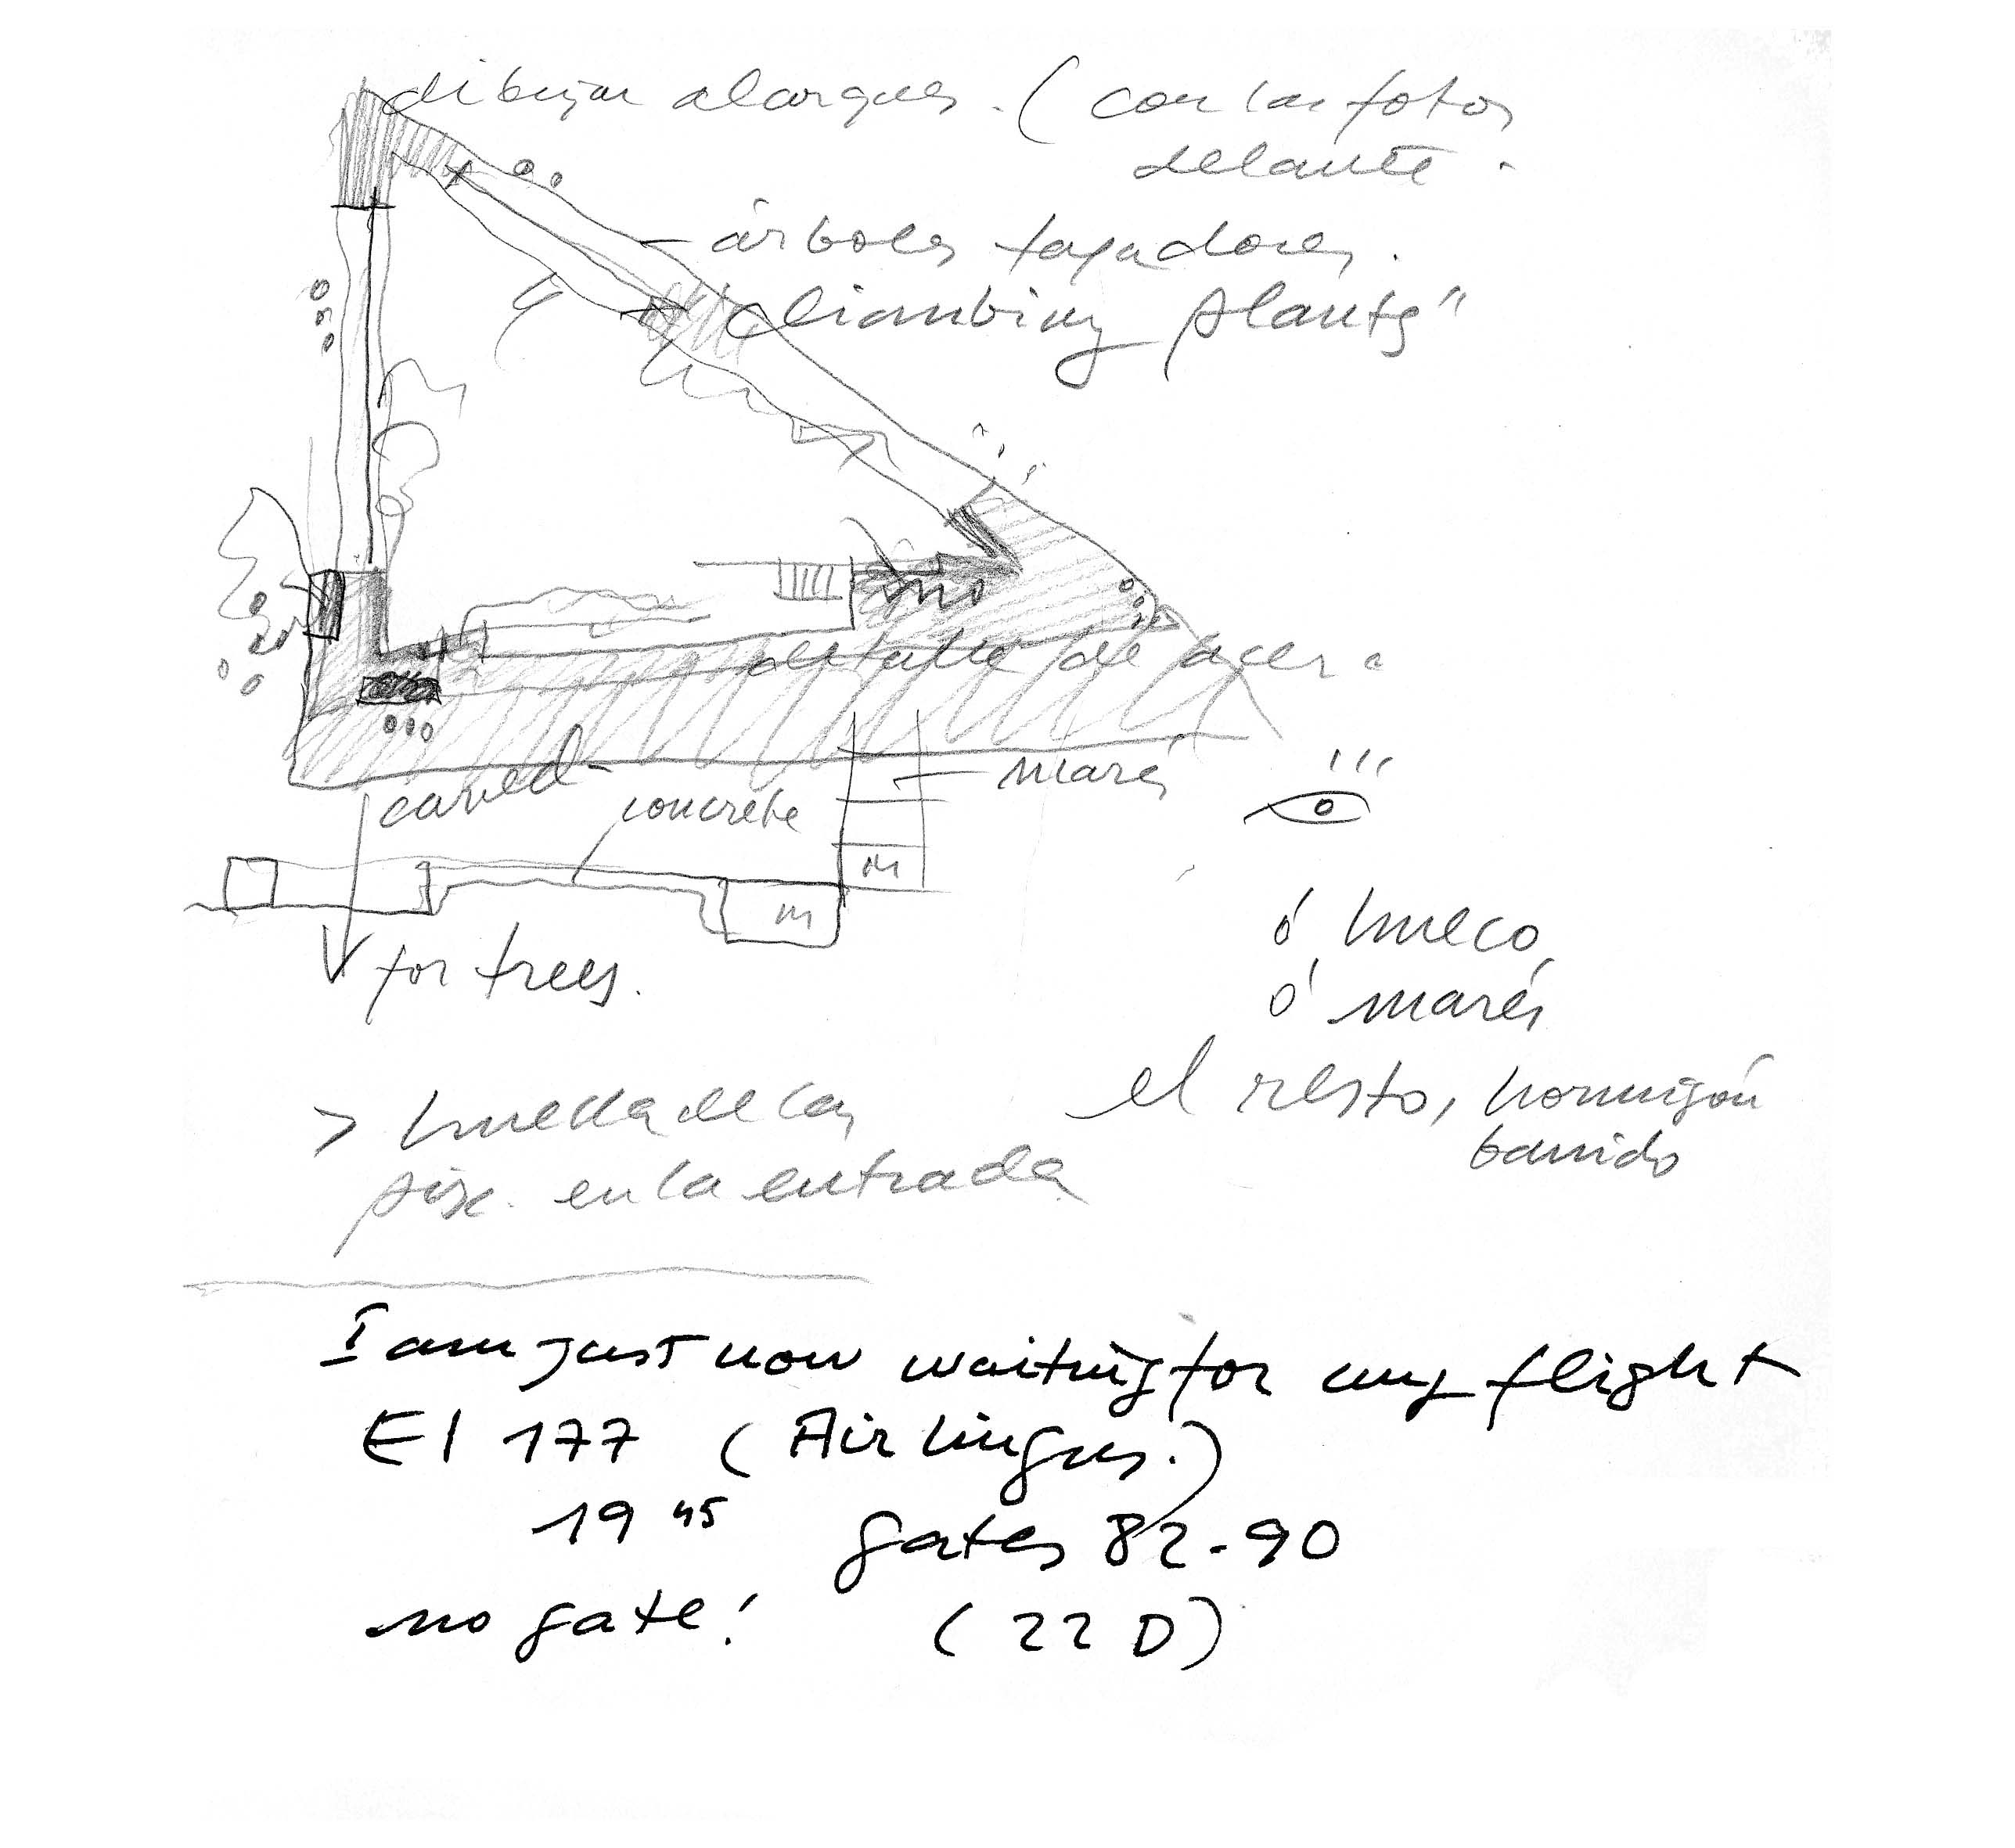 dibujar alcorques. (con las fotos
delante.
árboles tapadores.
"climbing plants"
detalle de acera
carved
concrete
marés
m
m
for trees.
ó hueco
ó marés
el resto, hormigón
barrido
> huella de las
en la entrada
I am just now waiting for my flight
EI 177 (Air lingus.)
19 45 gates 82-90
no gate! (22 D)